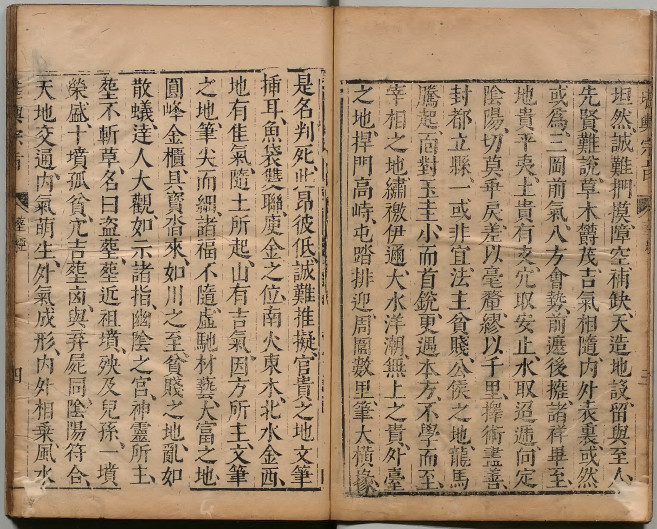 坦然、誠難捫摸、障空補缺、天造地設、留與至人、
先賢難說、草木欝茂、吉氣相隨、內外表裏、或然
或爲、三岡前氣、八方會勢、前遮後擁、諸祥畢至、
地貴平夷、土貴有支、穴取安止、水取迢遞、向定
陰陽、切莫乖戾、差以毫釐、繆以千里、擇術盡善
封都立縣、一或非宜、法主貧賤、公侯之地、龍馬
騰起、面對玉圭、小而首銳、更遇本方、不學而至、
宰相之地、繡檄伊邇、大水洋潮、無上之貴、外臺
之地、捍門高峙、屯踏排迎、周圍數里、筆大橫椽、
是名判死、此昂彼低、誠難推擬、官貴之地、文筆
揷耳、魚袋雙聯、庚金之位、南火東木、北水金西、
地有隹氣、隨土所起、山有吉氣、因方所主、文筆
之地、筆尖而細、諸福不隨、虛馳材藝、大富之地
圓峰金櫃、具寶沓來、如川之至、貧賤之地、亂如
散蟻、達人大觀、如示諸指、幽陰之宮、神靈所主、
塟不斬草、名曰盗塟、塟近祖墳、殃及兒孫、一墳
榮盛、十墳孤貧、穴吉塟凶、與弃屍同、陰陽符合、
天地交通、內氣萌生、外氣成形、內外相乘、風水
四